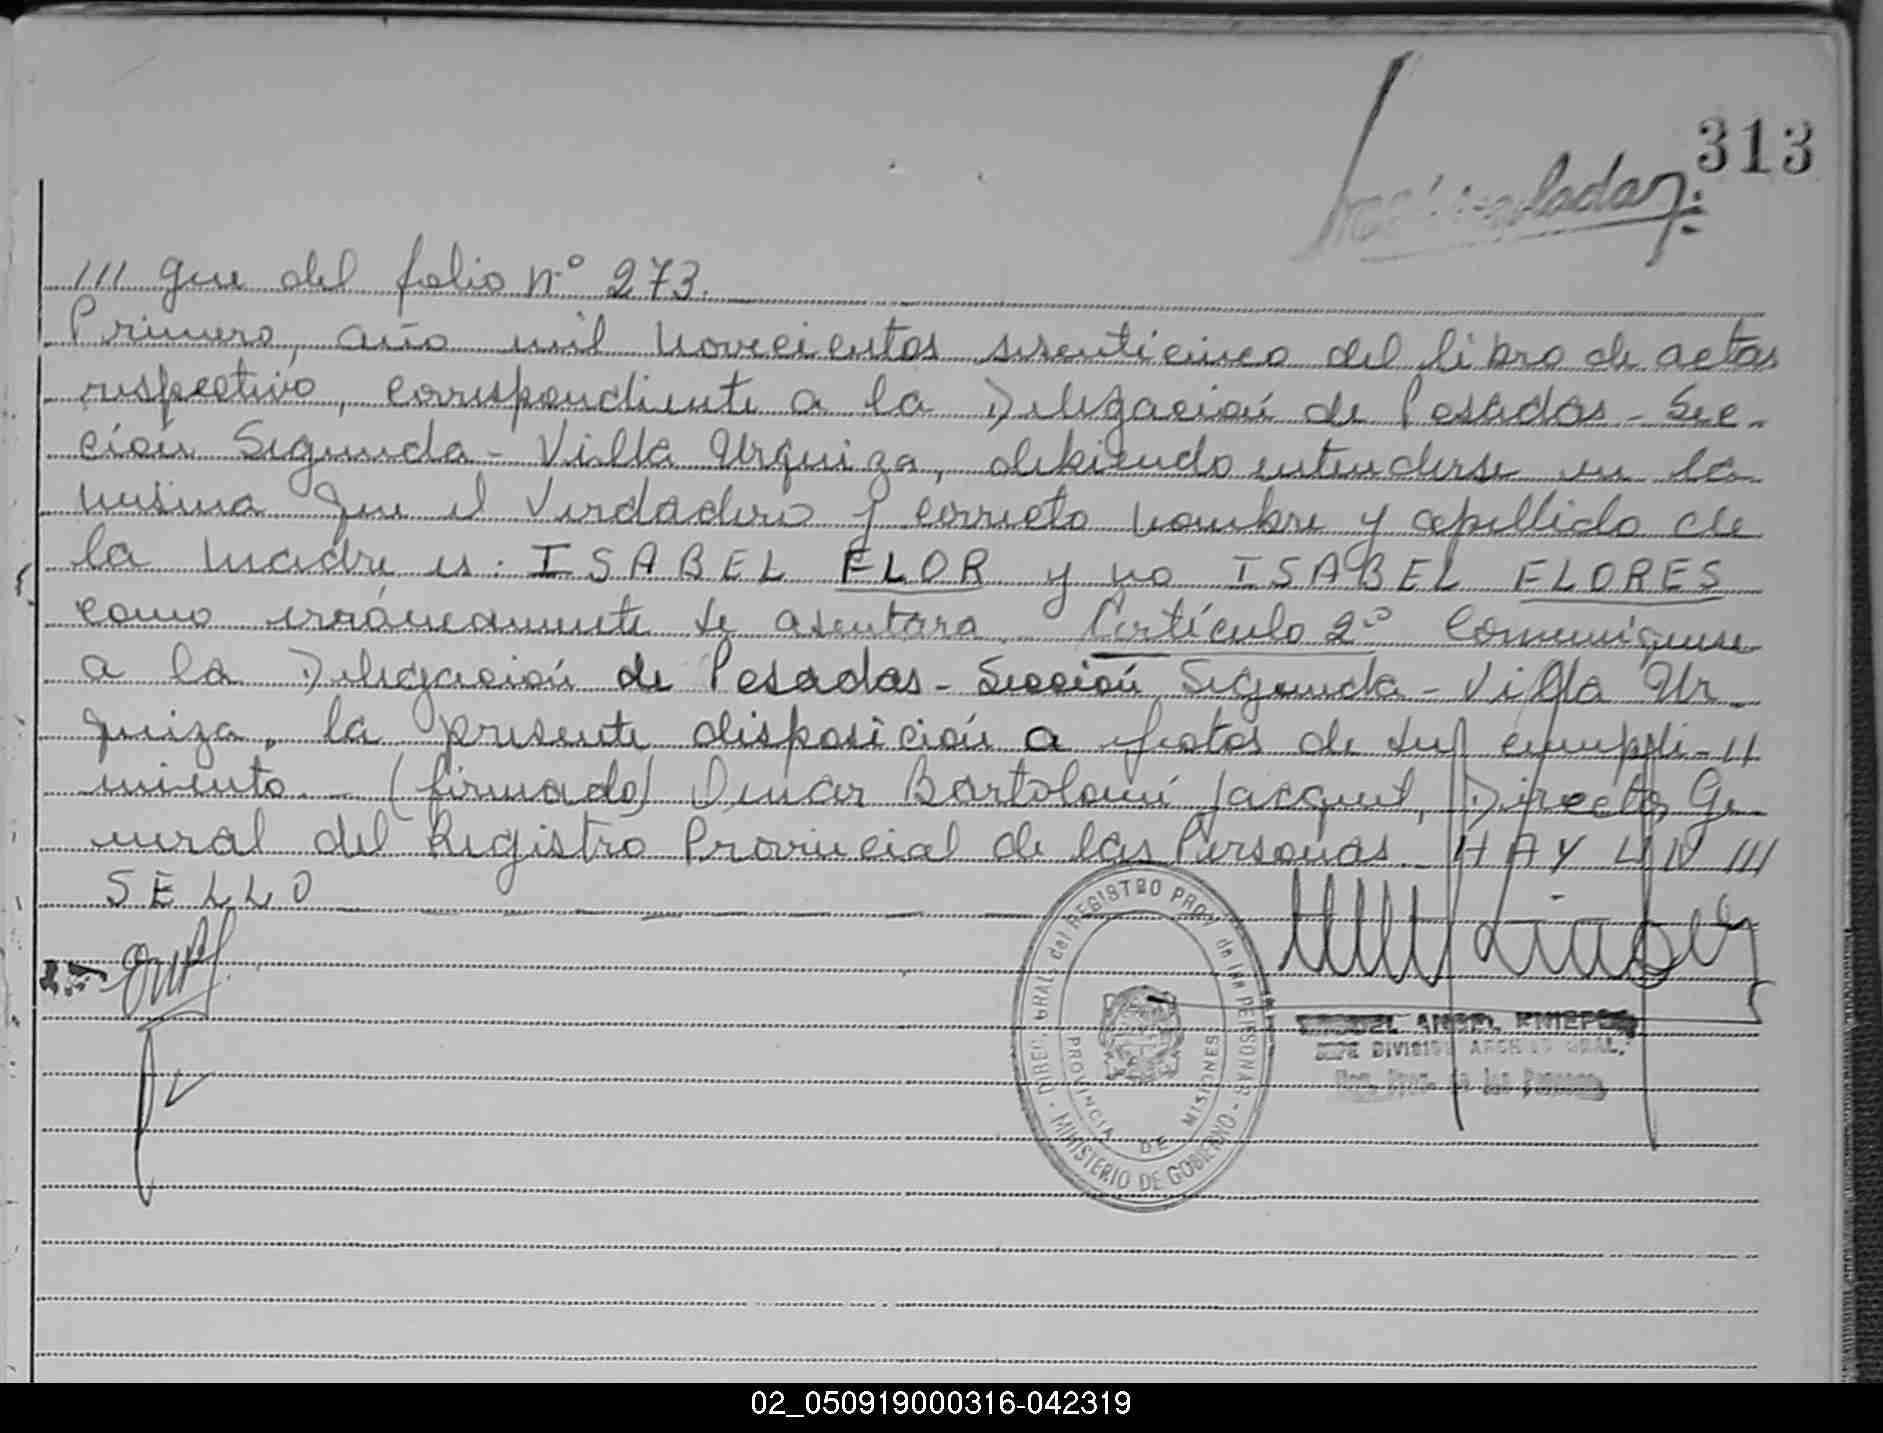 313
/// que del folio nº 273.
Primero, año mil novecientos sesenticinco del libro de actas
respectivo, correspondiente a la Delegación de Posadas - Sec-
ción Segunda - Villa Urquiza, debiendo entenderse en la
misma que el verdadero y correcto nombre y apellido de
la madre es: ISABEL FLOR y no ISABEL FLORES
como erróneamente se asentara. Artículo 2º Comuníquese
a la Delegación de Posadas - Sección Segunda - Villa Ur-
quiza, la presente disposición a efectos de su cumpli-//
miento. - (firmado) Omar Bartolomé Jacquet, Director Ge-
neral del Registro Provincial de las Personas. HAY UN ///
SELLO
DIREC. GRAL. del REGISTRO PROV. de las PERSONAS - MINISTERIO DE GOBIERNO -
PROVINCIA DE MISIONES
ANGEL
JEFE DIVISION ARCHIVO GRAL.
Reg. Prov. de las Personas
02_050919000316-042319